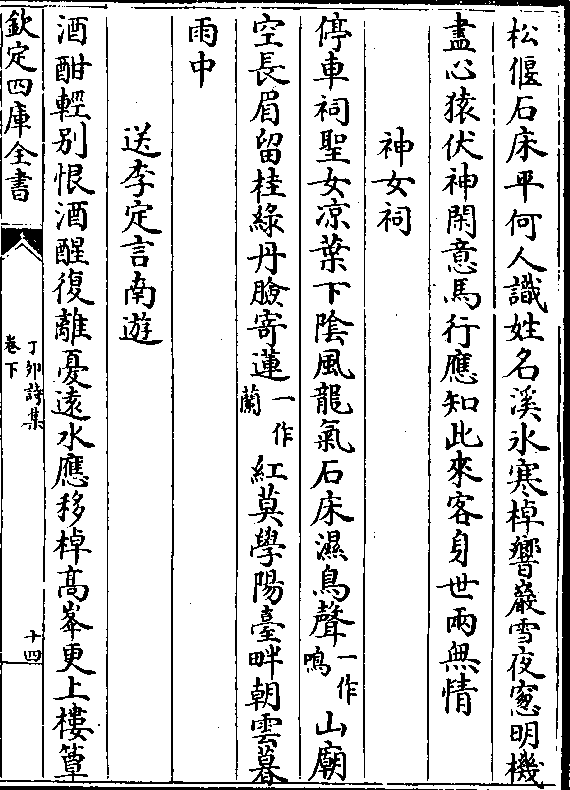 松偃石床平何人識姓名溪氷寒棹響巖雪夜窻明機
盡心猿伏神閑意馬行應知此來客身世兩無情
神女祠
停車祠聖女凉葉下陰風龍氣石床濕鳥聲一作鳴山廟
空長眉留桂綠丹臉寄蓮一作蘭紅莫學陽臺畔朝雲暮
雨中
送李定言南遊
酒酣輕别恨酒醒復離憂遠水應移棹髙峯更上樓簟
欽定四庫全書
丁卯詩集
卷下
十四